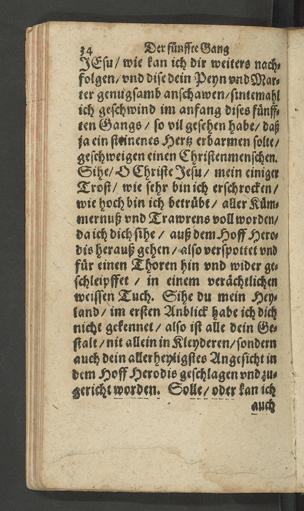 34 Der fünffte Gang
JEsu / wie kan ich dir weiters nach-
folgen / vnd dise dein Peyn vnd Mar-
ter genugsamb anschawen / sintemahl
ich geschwind im anfang dises fünff-
ten Gangs / so vil gesehen habe / daß
ja ein steinenes Hertz erbarmen solte /
geschweigen einen Christenmenschen.
Sihe / O Christe Jesu / mein einiger
Trost / wie sehr bin ich erschrocken /
wie hoch bin ich betrübt / aller Küm-
mernuß vnd Trawrens voll worden /
da ich dich sihe / auß dem Hoff Hero-
dis herauß gehen / also verspottet vnd
für einen Thoren hin vnd wider ge-
schleipffet / in einem verächtlichen
weissen Tuch. Sihe du mein Hey-
land / im ersten Anblick habe ich dich
nicht gekennet / also ist alle dein Ge-
stalt / nit allein in Kleyderen / sondern
auch dein allerheyligstes Angesicht in
dem Hoff Herodis geschlagen vnd zu-
gericht worden. Solle / oder kan ich
auch